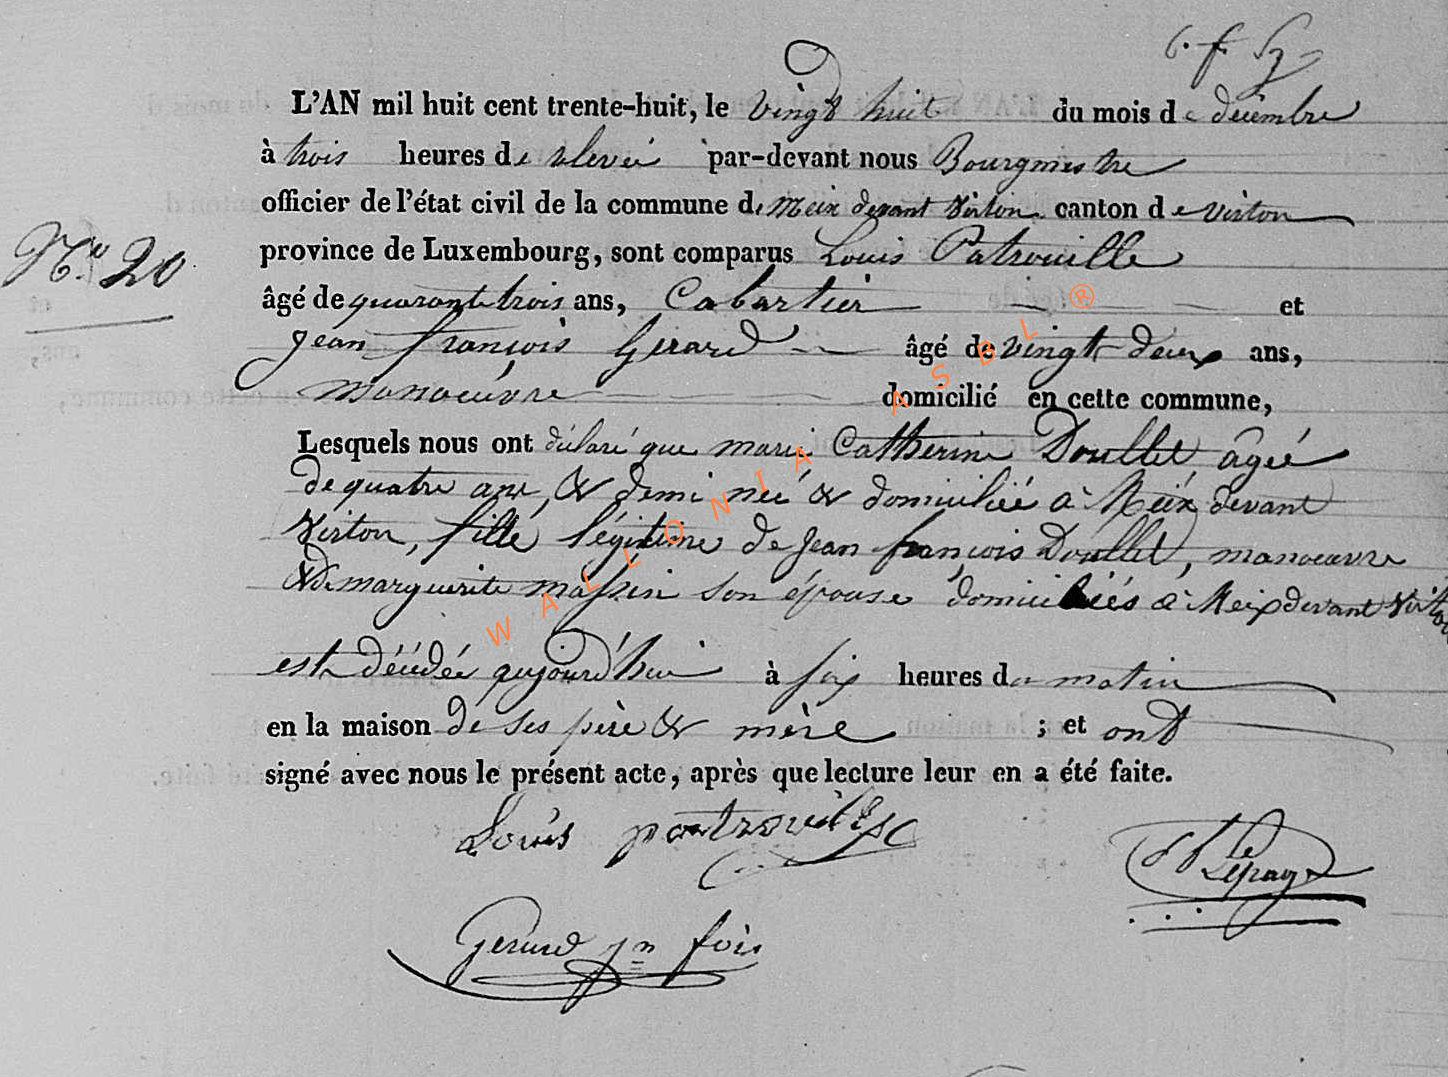 L'AN mil huit cent trente-huit, le vingt huit du mois de décembre
à trois heures de relevée par-devant nous Bourgmestre
officier de l'état civil de la commune de Meix devant Virton canton de Virton
N.° 20
province de Luxembourg, sont comparus Louis Patrouille
âgé de quarante trois ans, Cabartier et
Jean françois Gerard âgé de vingt deux ans,
manoeuvre domicilié en cette commune,
Lesquels nous ont déclaré que marie Catherine Doullet, âgée
de quatre ans & demi née & domiciliée à Meix devant
Virton, fille légitime de Jean françois Doullet, manoeuvre
& de marguerite massin son épouse domiciliés à Meix devant Virton
est décédée aujourd'hui à six heures du matin
en la maison de ses père & mère ; et ont
signé avec nous le présent acte, après que lecture leur en a été faite.
Louis patrouille
Lepage
Gerard jn fois
WALLONIA ASBL ®